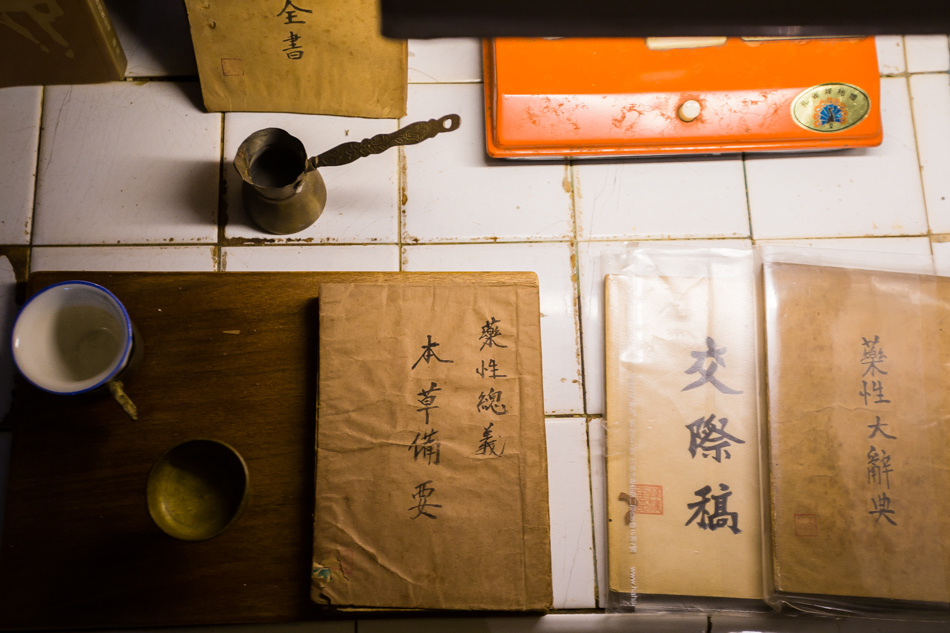 全書
藥性總義
本草備要
交際稿
藥性大辭典